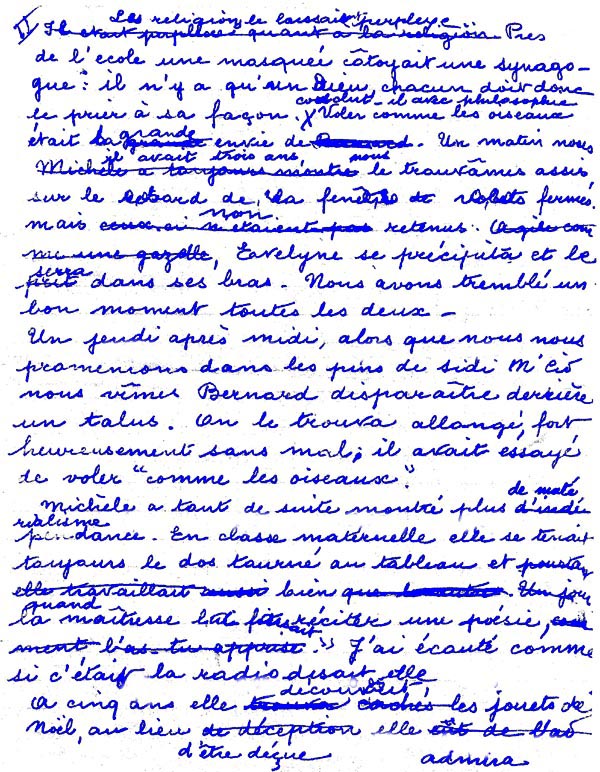 II Les religions le laissait perplexe
Il était perplexe quant à la religion. Près
de l'école une mosquée côtoyait une synago-
gue : il n'y a qu'un Dieu, chacun doit donc
conclut-il avec philosophie
le prier à sa façon. X Voler comme les oiseaux
était la grande grande envie de Bernard. Un matin nous
il avait trois ans, nous
Michèle a toujours montré le trouvâmes assis
sur le rebord de la fenêtre volets fermés
non
mais ceux-ci n'étaient pas retenus. Agile com
me une gazelle, Evelyne se précipita et le
serra
prit dans ses bras. Nous avons tremblé un
bon moment toutes les deux -
Un jeudi après midi, alors que nous nous
promenions dans les pins de sidi M'Cid
nous vîmes Bernard disparaître derrière
un talus. On le trouva allongé, fort
heureusement sans mal ; il avait essayé
de voler "comme les oiseaux".
de maté
Michèle a tout de suite montré plus d'indé
rialisme
pendance. En classe maternelle elle se tenait
toujours le dos tourné au tableau et pourtant
elle travaillait aussi bien que les autres. Un jour
quand
la maîtresse lui fit réciter une poésie, com
ment l'as-tu apprise ?" J'ai écouté comme
si c'était la radio disait elle
découvrit,
A cinq ans elle trouva cachés les jouets de
Noël, au lieu de déception elle
d'être déçue admira